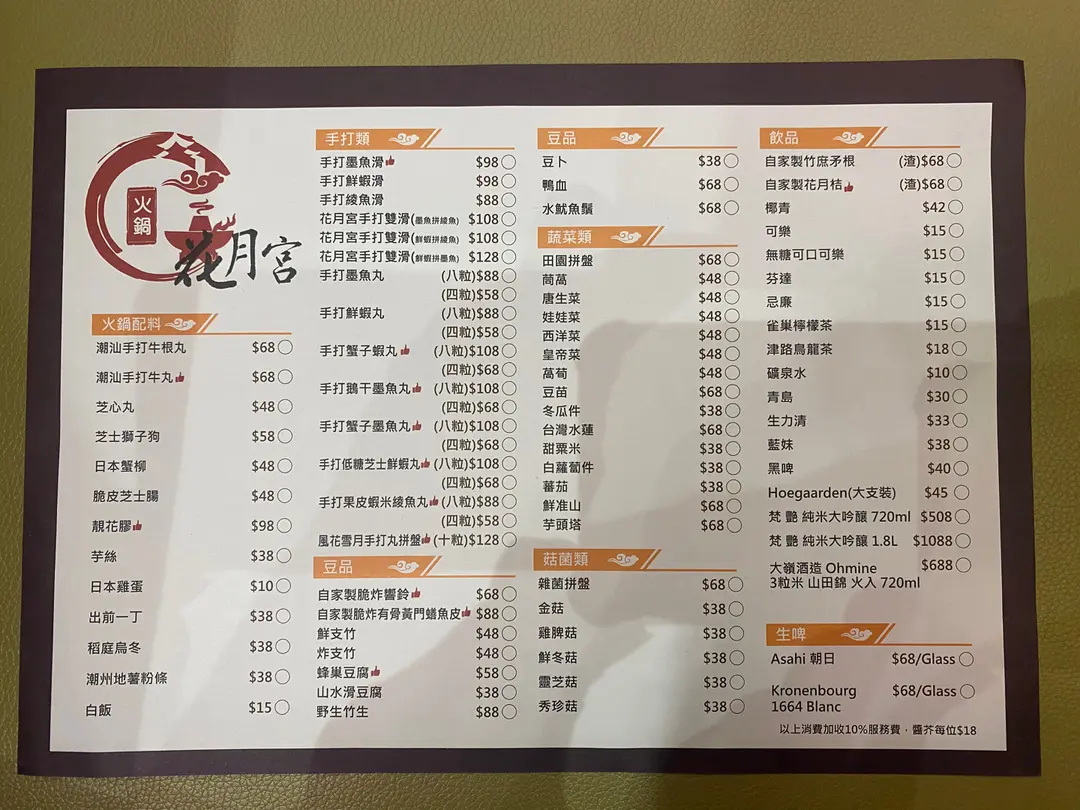 火鍋
花月宮
火鍋配料
潮汕手打牛根丸 $68
潮汕手打牛丸 $68
芝心丸 $48
芝士獅子狗 $58
日本蟹柳 $48
脆皮芝士腸 $48
靚花膠 $98
芋絲 $38
日本雞蛋 $10
出前一丁 $38
稻庭烏冬 $38
潮州地薯粉條 $38
白飯 $15
手打類
手打墨魚滑 $98
手打鮮蝦滑 $98
手打綾魚滑 $88
花月宮手打雙滑(墨魚拼綾魚) $108
花月宮手打雙滑(鮮蝦拼綾魚) $108
花月宮手打雙滑(鮮蝦拼墨魚) $128
手打墨魚丸 (八粒)$88
(四粒)$58
手打鮮蝦丸 (八粒)$88
(四粒)$58
手打蟹子蝦丸 (八粒)$108
(四粒)$68
手打鵝干墨魚丸 (八粒)$108
(四粒)$68
手打蟹子墨魚丸 (八粒)$108
(四粒)$68
手打低糖芝士鮮蝦丸 (八粒)$108
(四粒)$68
手打果皮蝦米綾魚丸 (八粒)$88
(四粒)$58
風花雪月手打丸拼盤 (十粒)$128
豆品
自家製脆炸響鈴 $68
自家製脆炸有骨黃門鱔魚皮 $88
鮮支竹 $48
炸支竹 $48
蜂巢豆腐 $58
山水滑豆腐 $38
野生竹生 $88
豆品
豆卜 $38
鴨血 $68
水魷魚鬚 $68
蔬菜類
田園拼盤 $68
茼萵 $48
唐生菜 $48
娃娃菜 $48
西洋菜 $48
皇帝菜 $48
萵荀 $48
豆苗 $68
冬瓜件 $38
台灣水蓮 $68
甜粟米 $38
白蘿蔔件 $38
蕃茄 $38
鮮准山 $68
芋頭塔 $68
菇菌類
雜菌拼盤 $68
金菇 $38
雞脾菇 $38
鮮冬菇 $38
靈芝菇 $38
秀珍菇 $38
飲品
自家製竹庶矛根 (渣)$68
自家製花月桔 (渣)$68
椰青 $42
可樂 $15
無糖可口可樂 $15
芬達 $15
忌廉 $15
雀巢檸檬茶 $15
津路烏龍茶 $18
礦泉水 $10
青島 $30
生力清 $33
藍妹 $38
黑啤 $40
Hoegaarden(大支裝) $45
梵 艷 純米大吟釀 720ml $508
梵 艷 純米大吟釀 1.8L $1088
大嶺酒造 Ohmine $688
3粒米 山田錦 火入 720ml
生啤
Asahi 朝日 $68/Glass
Kronenbourg $68/Glass
1664 Blanc
以上消費加收10%服務費，醬芥每位$18